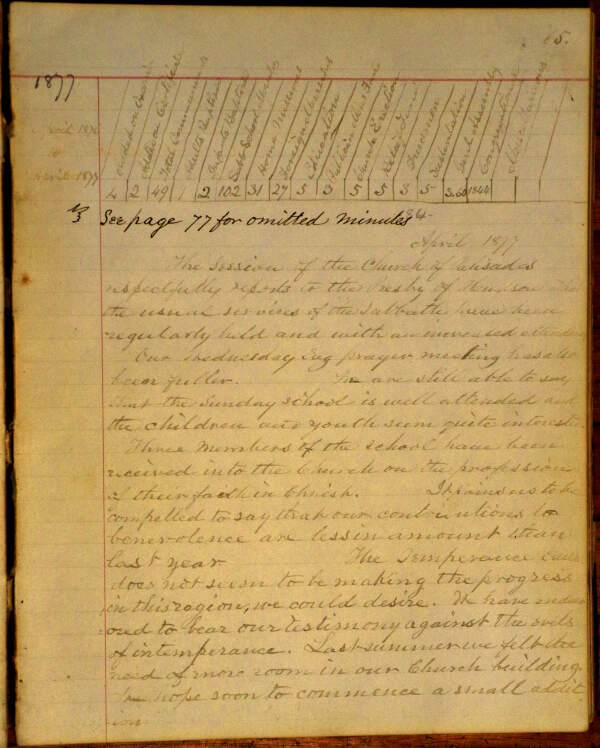 5.
1877
Added on Exam
Added on Certificate
Total Communicants
Adults Baptized
Infants Baptized
Sabb. School Membs
Home Missions
Foreign Missions
Education
Publication
Church Erection
Relief Fund
Freedmen
Sustentation
Genl Assembly
Congregational
April 1876
to
April 1877
4 2 49 1 2 102 31 27 5 3 5 5 5 5 3.60 1840
See page 77 for omitted minutes
April 1877
The Session of the Church of Palisades
respectfully reports to the Presby of Hudson that
the usual services of the Sabbath have been
regularly held and with an increased attendance
Our Wednesday Evg prayer meeting has also
been fuller. We are still able to say
that the Sunday School is well attended and
the children and youth seem quite interested.
Three members of the School have been
received into the Church on the profession
of their faith in Christ. It pains us to be
compelled to say that our contributions to
benevolence are less in amount than
last year The Temperance cause
does not seem to be making the progress
in this region, we could desire. We have endeav
ored to bear our testimony against the evils
of intemperance. Last summer we felt the
need of more room in our Church building.
We hope soon to commence a small addit
ion